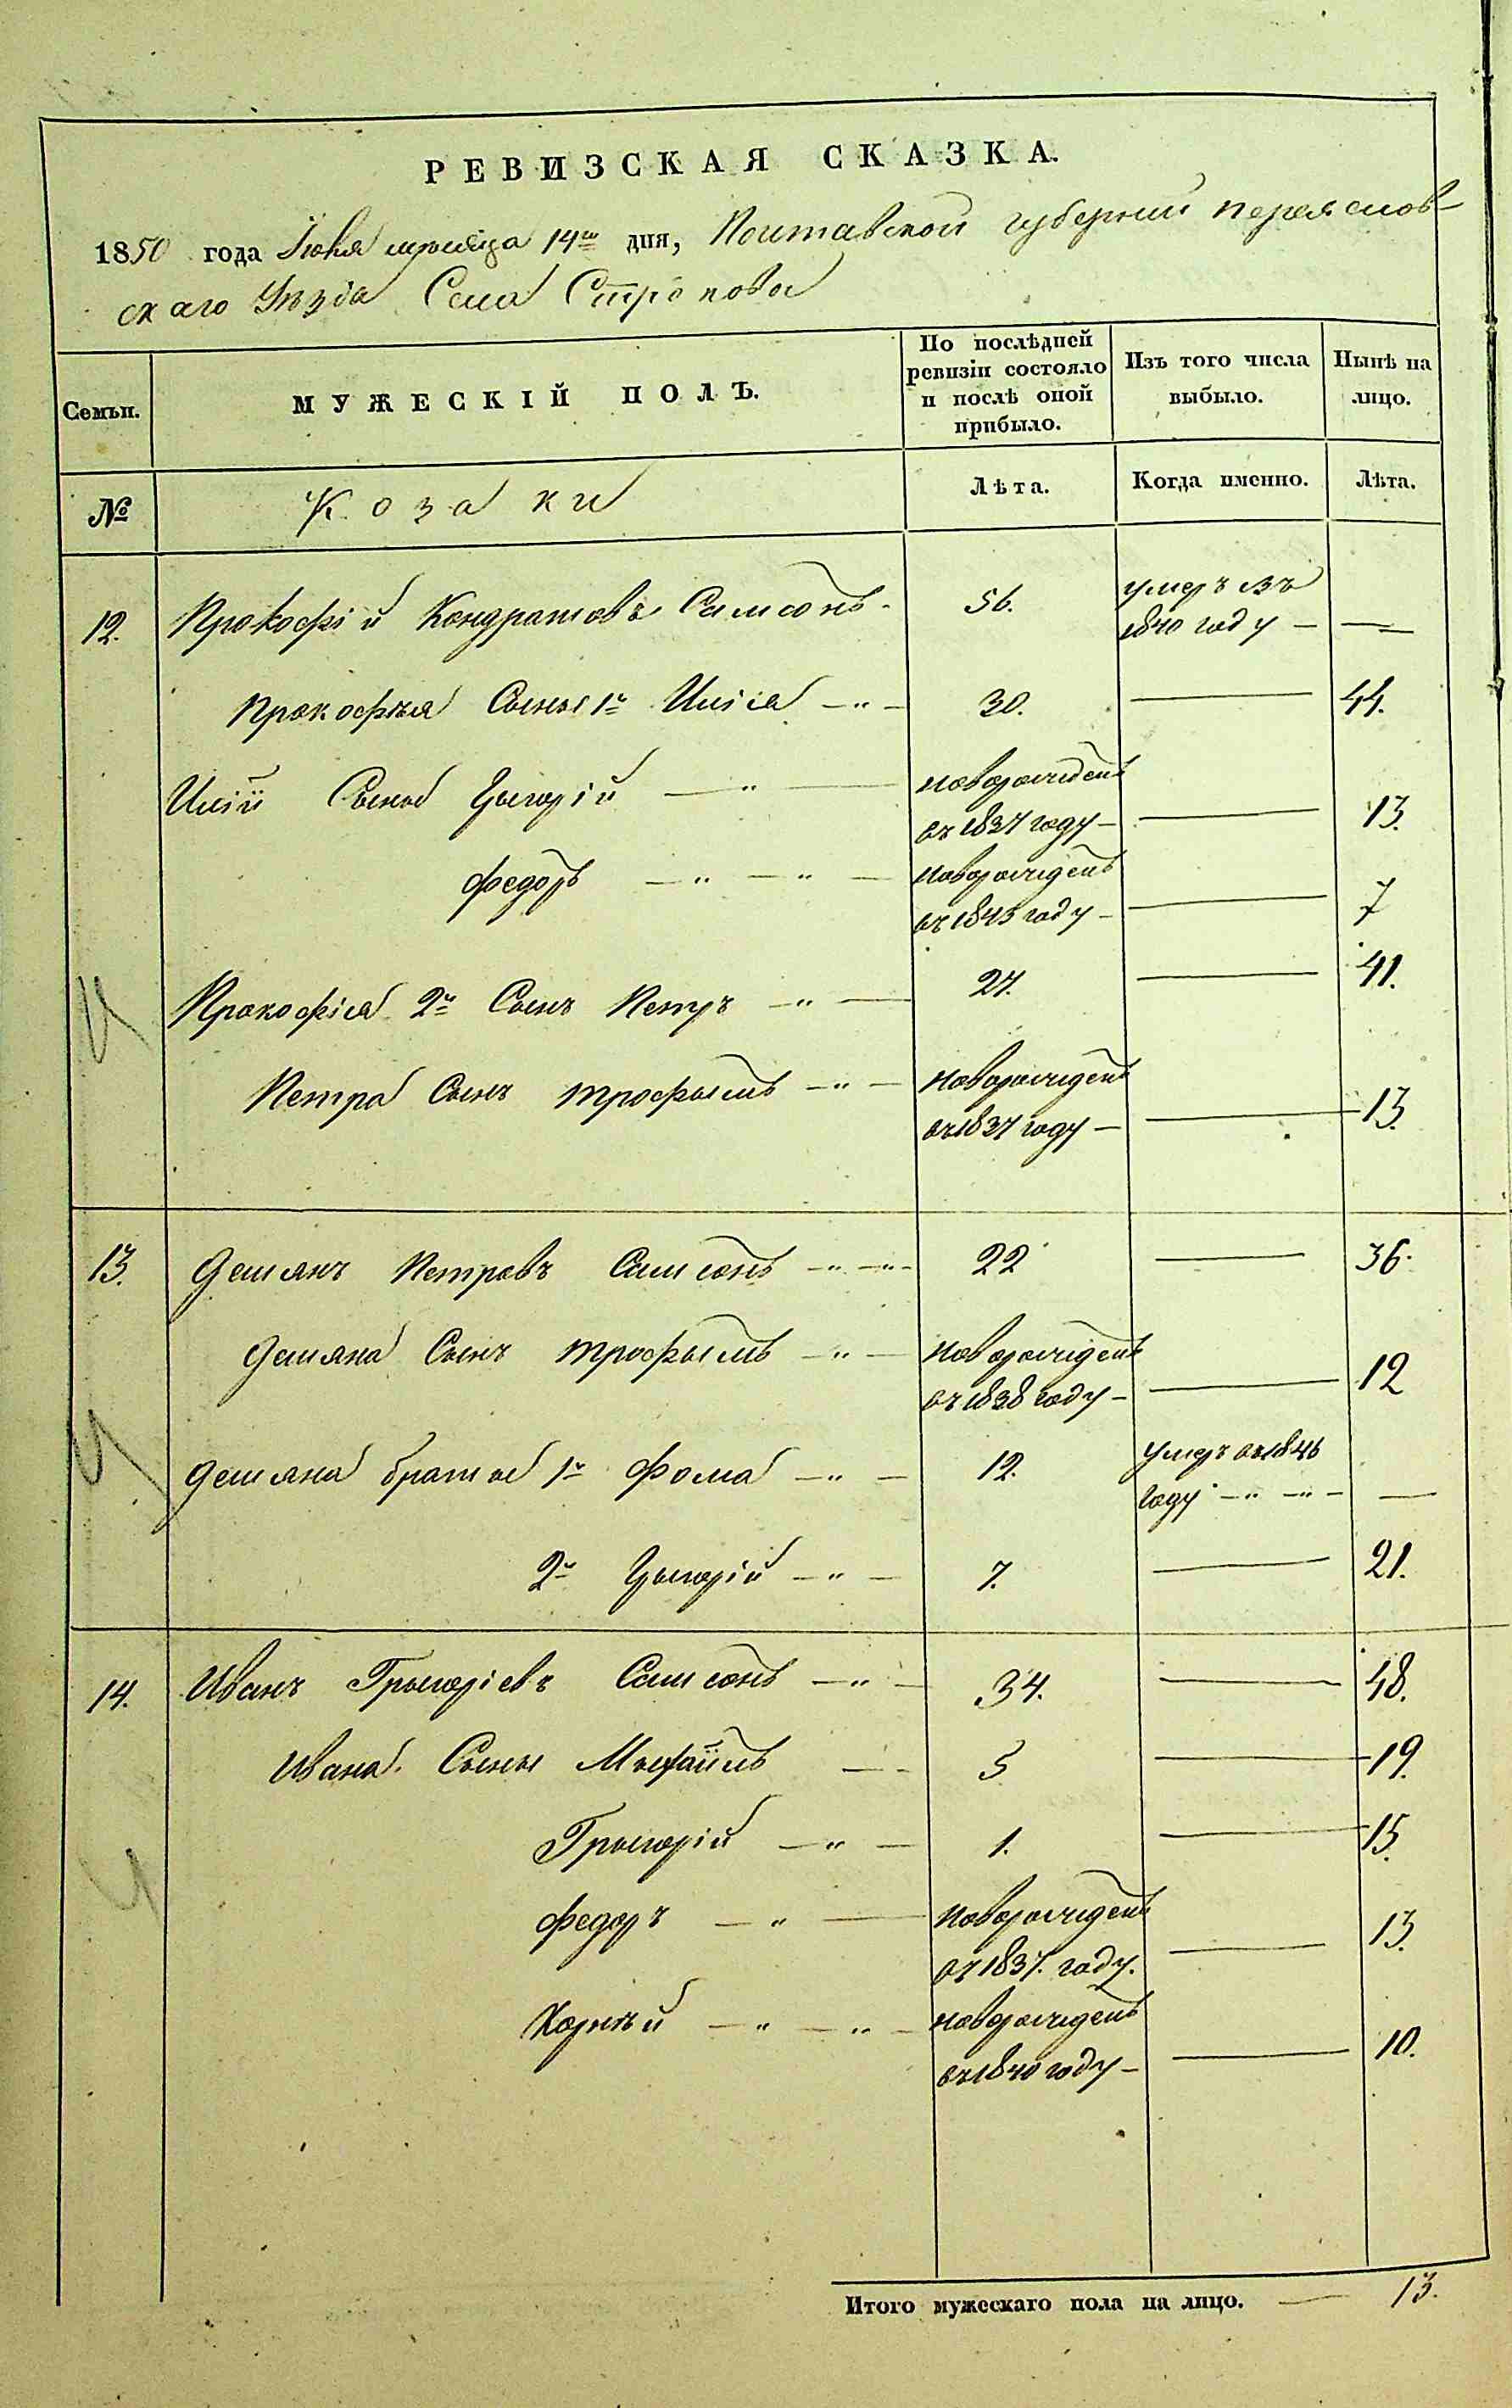 РЕВИЗСКАЯ СКАЗКА.
1850 года Іюня мѣсяца 14го дня, Полтавской губерніи переяслов-
скаго Уѣзда Села Строкова
Семьи. МУЖЕСКІЙ ПОЛЪ. По послѣдней ревизіи состояло и послѣ оной прибыло. Изъ того числа выбыло. Нынѣ на лицо.
№ Козаки Лѣта. Когда именно. Лѣта.
12. Прокофій Кондратовъ Самсонъ 56. умеръ въ 1840 году — —
Прокофія Сыны 1й Илія — 30. — 44.
Иліи Сыны Грыгорій — новорожденъ въ 1837 году — — 13.
Федоръ — новорожденъ въ 1843 году — — 7
Прокофія 2й Сынъ Петръ — 27. — 41.
Петра Сынъ трофымъ — новорожденъ въ 1837 году — — 13.
13. Демянъ Петровъ Самсонъ — 22 — 36.
Демяна Сынъ трофымъ — новорожденъ въ 1838 году — — 12
Демяна братья 1й Фома — 12. Умеръ въ 1846 году — —
2й Грыгорій — 7. — 21.
14. Иванъ Грыгоріевъ Самсонъ — 34. — 48.
Ивана Сыны Мыхаилъ — 5 — 19.
Грыгорій — 1. — 15.
Федоръ — новорожденъ въ 1837. году. — 13.
Корнѣй — новорожденъ въ 1840 году — — 10.
Итого мужескаго пола на лицо. — 13.